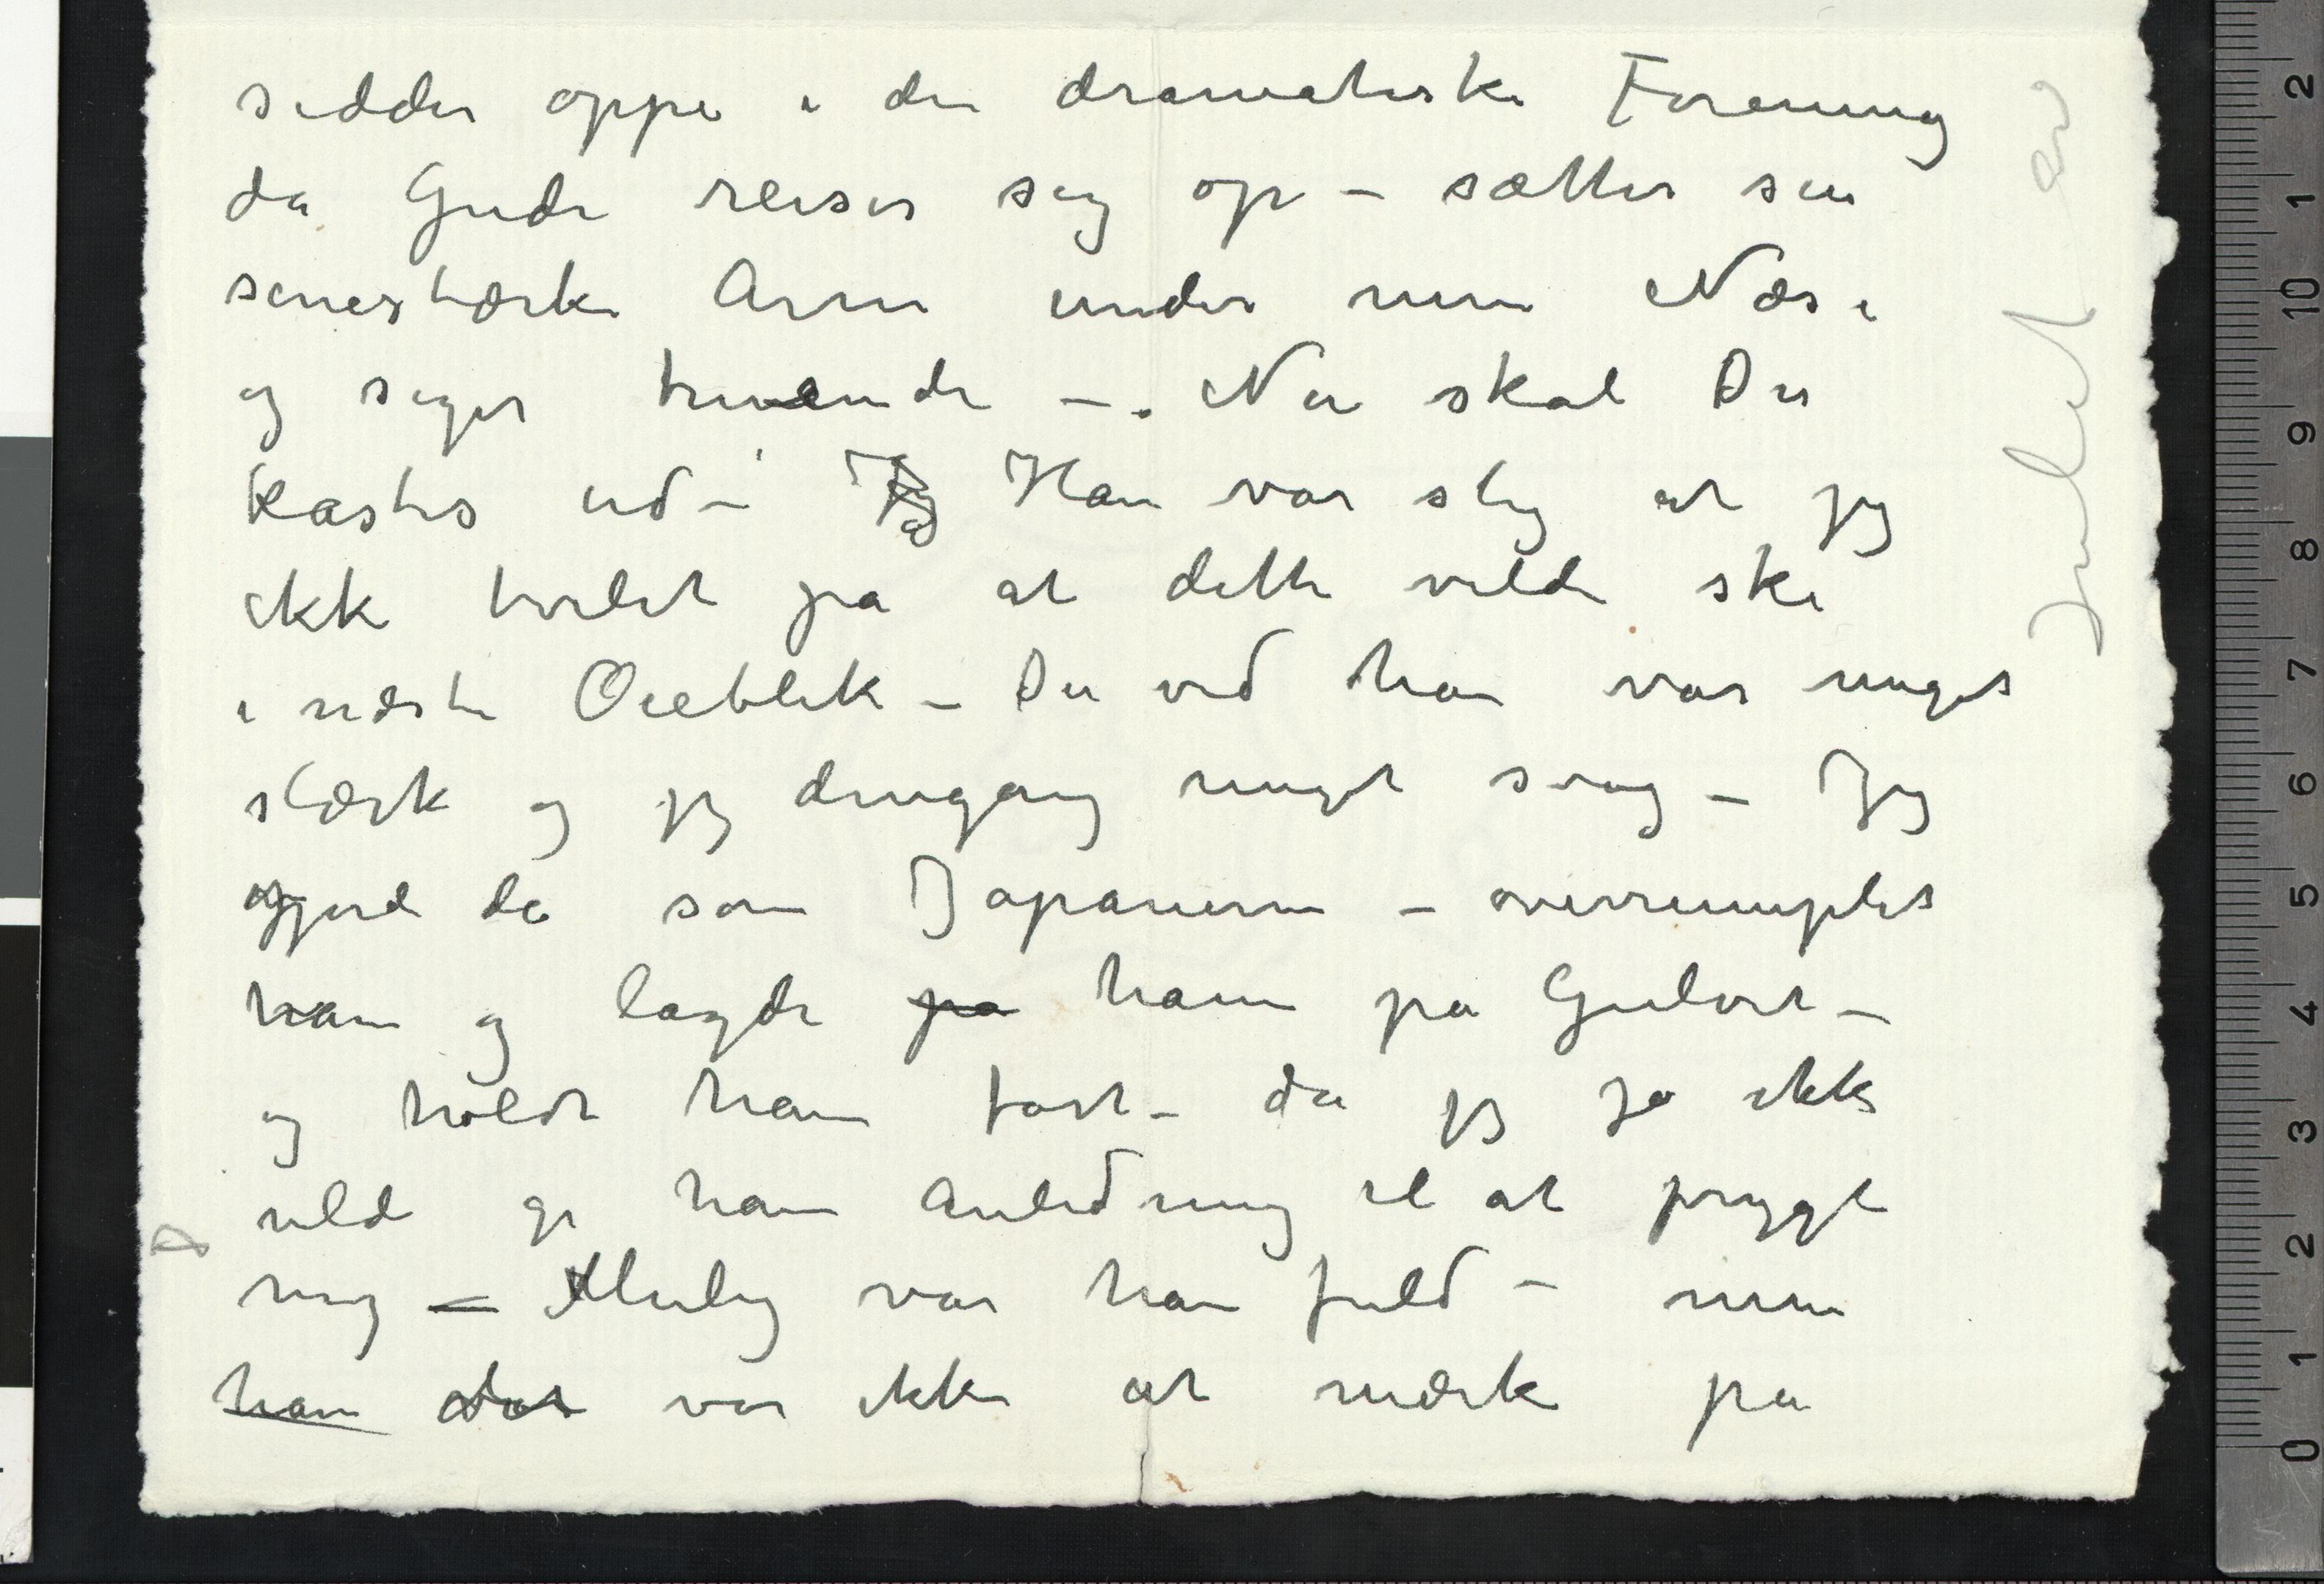 sidder oppe i den dramatiske Forening
da Gude reiser sig op – sætter sin
senestærke Arm under min Næse
og siger truende –. Nu skal Du
kastes ud – Jeg Han var slig at jeg
ikke tvilet på at dette vilde ske
i næste Øieblik – Du ved han var meget
stærk og jeg dengang meget svag – Jeg
gjorde da som Japanerne – overrumplet
ham og lagde på ham på Gulvet –
og holdt ham fast – da jeg jo ikke
vilde gi ham Anledning til at prygle
mig – Mulig var han fuld – men
ham det var ikke at mærke på